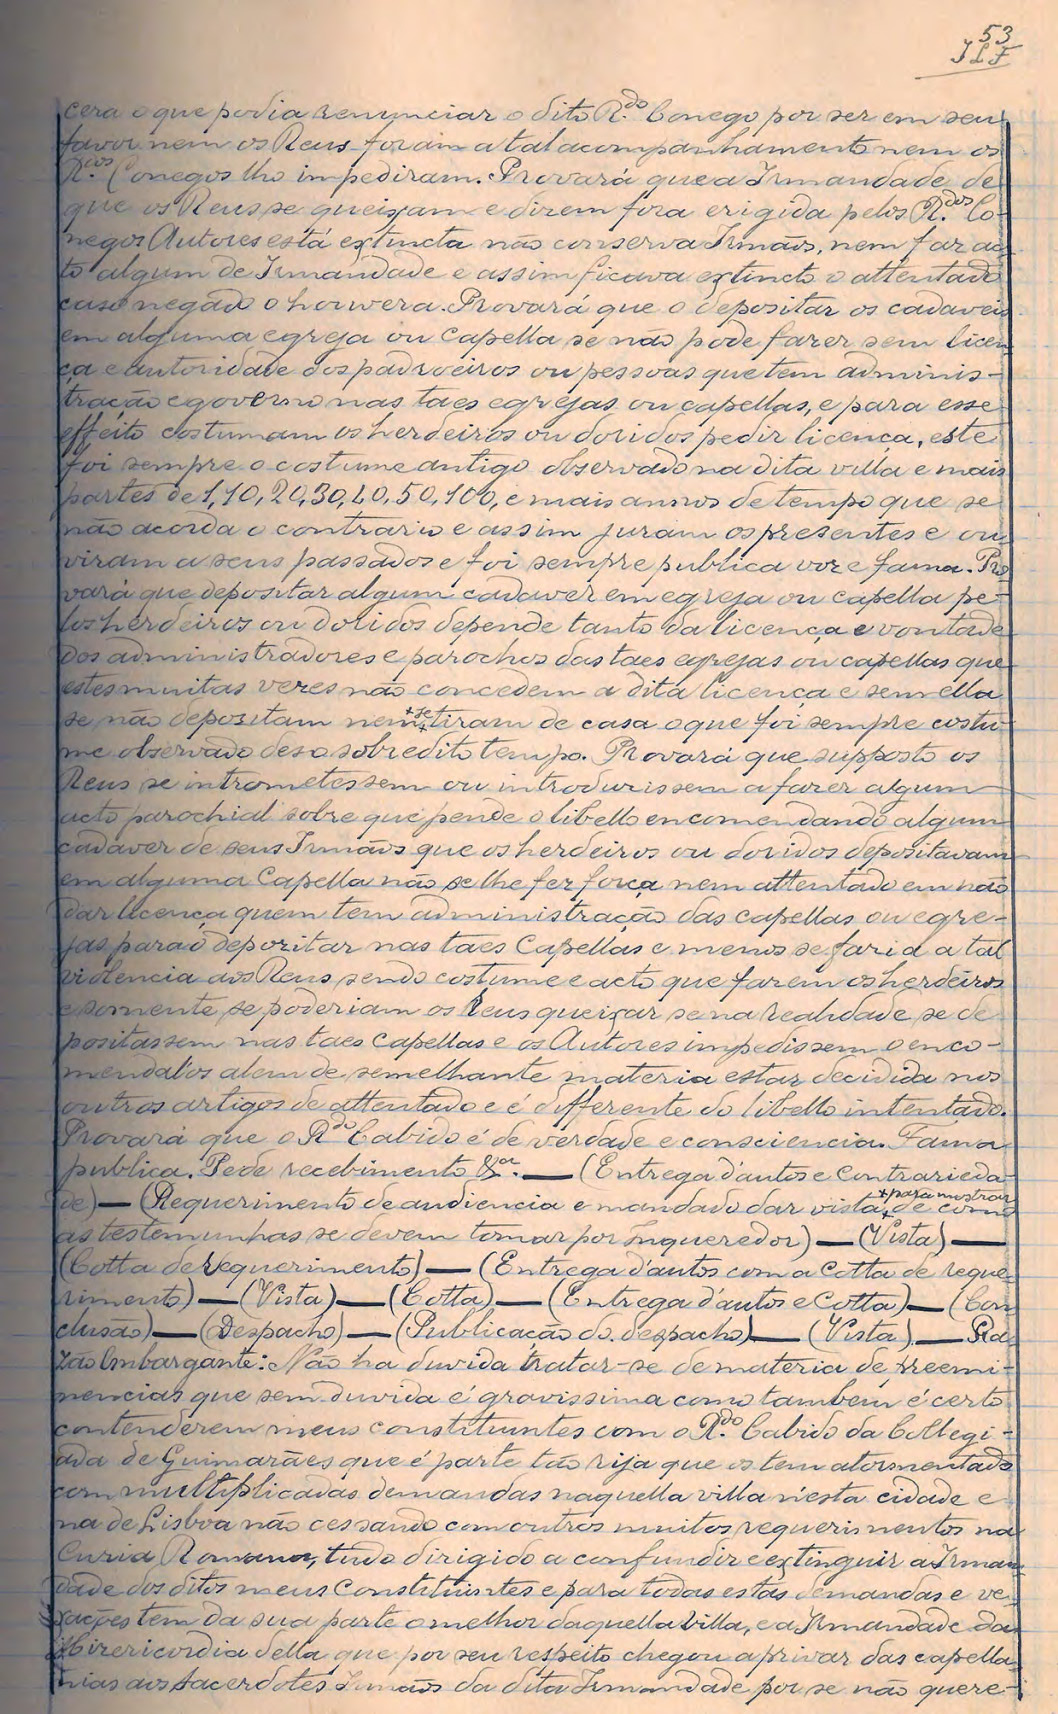 53
JLF
cera o que podia renunciar o dito R.do Conego por ser em seu
favor nem os Reus foram a tal acompanhamento nem os
R.dos Conegos lho impediram. Provará que a Irmandade de
que os Reus se queixam e dizem fora erigida pelos R.dos Co-
negos Autores está extincta não conserva Irmãos, nem faz ac-
to algum de Irmandade e assim ficava extincto o attentado
caso negado o houvera. Provará que o depositar os cadaveis
em alguma egreja ou Capella se não pode fazer sem licen
ça e autoridade dos padroeiros ou pessoas que tem adminis-
tração e governo nas taes egrejas ou capellas, e para esse
effeito costumam os herdeiros ou doridos pedir licença, este
foi sempre o costume antigo observado na dita villa e mais
partes de 1, 10, 20, 30, 40, 50, 100, e mais annos de tempo que se
não acorda o contrario e assim juram os presentes e ou
viram a seus passados e foi sempre publica voz e fama. Pro
vará que depositar algum cadaver em egreja ou capella pe-
los herdeiros ou doridos depende tanto da licença e vontade
dos administradores e parochos das taes egrejas ou capellas que
estes muitas vezes não concedem a dita licença e sem ella
se não depositam nem +se+ tiram de casa o que foi sempre costu
me observado des o sobredito tempo. Provará que supposto os
Reus se intrometessem ou introduzissem a fazer algum
acto parochial sobre que pende o libello encomendando algum
cadaver de seus Irmãos que os herdeiros ou doridos depositavam
em alguma Capella não se lhe fez força nem attentado em não
dar licença quem tem administração das capellas ou egre-
jas para o depozitar nas taes Capellas e menos se faria a tal
violencia aos Reus sendo costume e acto que fazem os herdeiros
e somente se poderiam os Reus queixar se na realidade se de
positassem nas taes capellas e os Autores impedissem o enco-
mendal'os alem de semelhante materia estar decidida nos
outros artigos de attentado e é differente do libello intentado.
Provará que o R.do Cabido é de verdade e consciencia. Fama
publica. Pede recebimento &.a — (Entrega d'autos e Contrarieda
de) — (Requerimento de audiencia e mandado dar vista +para mostrar+ de como
as testemunhas se devem tomar por Inqueredor) — (Vista) —
(Cotta de requerimento) — (Entrega d'autos com a Cotta de reque-
rimento) — (Vista) — (Cotta) — (Entrega d'autos e Cotta) — (Con
clusão) — (Despacho) — (Publicação do despacho) — (Vista) — Ra
zão Embargante: Não ha duvida tratar-se de materia de preemi-
nencias que sem duvida é gravissima como tambem é certo
contenderem meus constituintes com o R.do Cabido da Collegi-
ada de Guimarães que é parte tão rija que os tem atormentado
com multiplicadas demandas naquella villa n'esta cidade e
na de Lisboa não cessando com outros muitos requerimentos na
Curia Romana, tudo dirigido a confundir e extinguir a Irman
dade dos ditos meus Constituintes e para todas estas demandas e ve-
xações tem da sua parte o melhor daquella villa, e a Irmandade da
Mizericordia della que por seu respeito chegou a privar das capella-
nias aos sacerdotes Irmãos da dita Irmandade por se não quere-